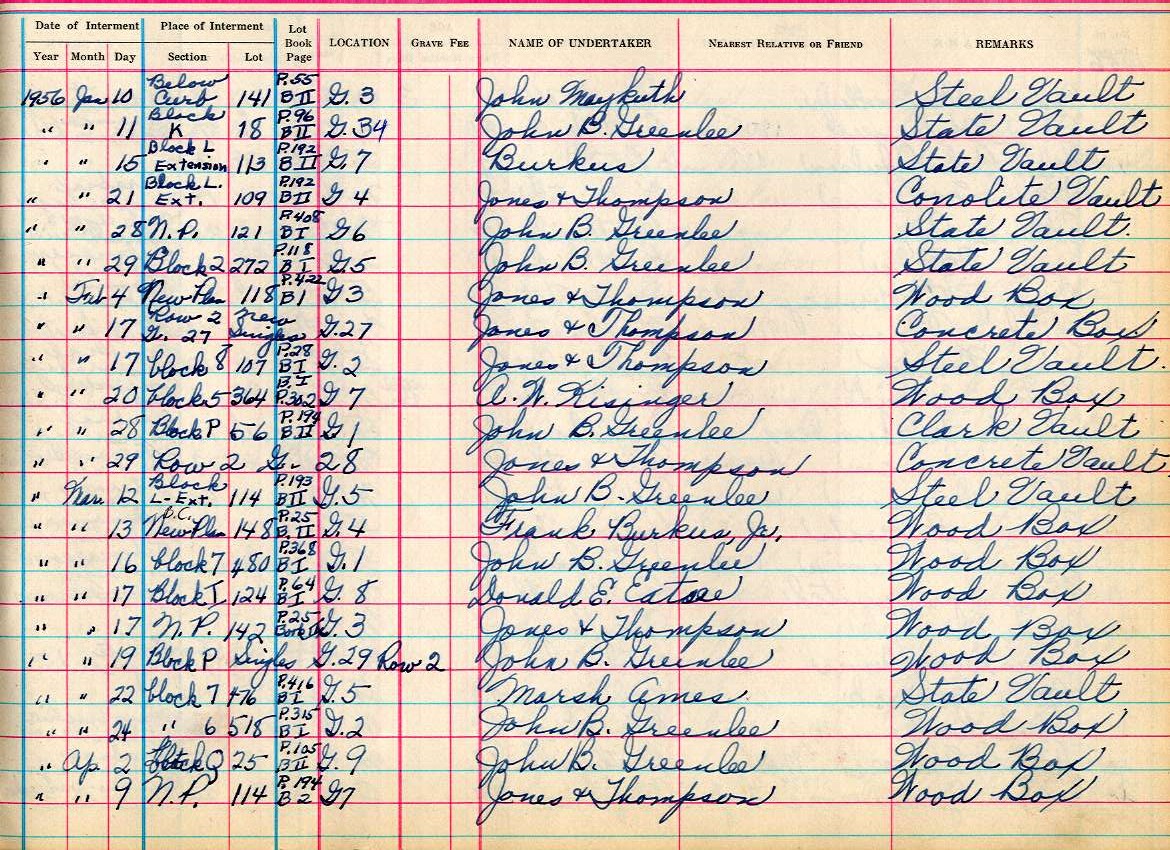 Date of Interment Place of Interment Lot Book Page LOCATION GRAVE FEE NAME OF UNDERTAKER NEAREST RELATIVE OR FRIEND REMARKS
Year Month Day Section Lot
1956 Jan 10 Below Curb 141 P.55 B II G. 3 John Maykuth Steel Vault
" " 11 Block K 18 P.96 B II G. 34 John B. Greenlee State Vault
" " 15 Block L Extension 113 P.192 B II G. 7 Burkus State Vault
" " 21 Block L. Ext. 109 P.192 B II G 4 Jones & Thompson Conolite Vault
" " 28 N.P. 121 P.408 B I G6 John B. Greenlee State Vault.
" " 29 Block 2 272 P.118 B I G.5 John B. Greenlee State Vault
" Feb 4 New Plan 118 P.422 B1 G3 Jones & Thompson Wood Box
" " 17 Row 2 G. 27 Singles G.27 Jones & Thompson Concrete Box
" " 17 block 8 107 P.28 B I G. 2 Jones & Thompson Steel Vault.
" " 20 block 5 364 B. I P.302 G 7 A. W. Kisinger Wood Box
" " 28 Block P 56 P.194 B II G 1 John B. Greenlee Clark Vault
" " 29 Row 2 G. 28 Jones & Thompson Concrete Vault
" Mar. 12 Block L-Ext. 114 P.193 B II G. 5 John B. Greenlee Steel Vault
" " 13 B.C. New Plan 148 P.25 B. II G. 4 Frank Burkus, Jr. Wood Box
" " 16 block 7 480 P.368 B I G. 1 John B. Greenlee Wood Box
" " 17 Block I 124 P.64 B I G. 8 Donald E. Wood Box
" " 17 N. P. 142 P.25 Book II G. 3 Jones & Thompson Wood Box
" " 19 Block P Singles G. 29 Row 2 John B. Greenlee Wood Box
" " 22 block 7 476 P.416 B I G. 5 Marsh Ames State Vault
" " 24 " 6 518 P.315 B I G. 2 John B. Greenlee Wood Box
" Ap. 2 block Q 25 P.105 B II G. 9 John B. Greenlee Wood Box
" " 9 N.P. 114 P. 194 B 2 G7 Jones & Thompson Wood Box